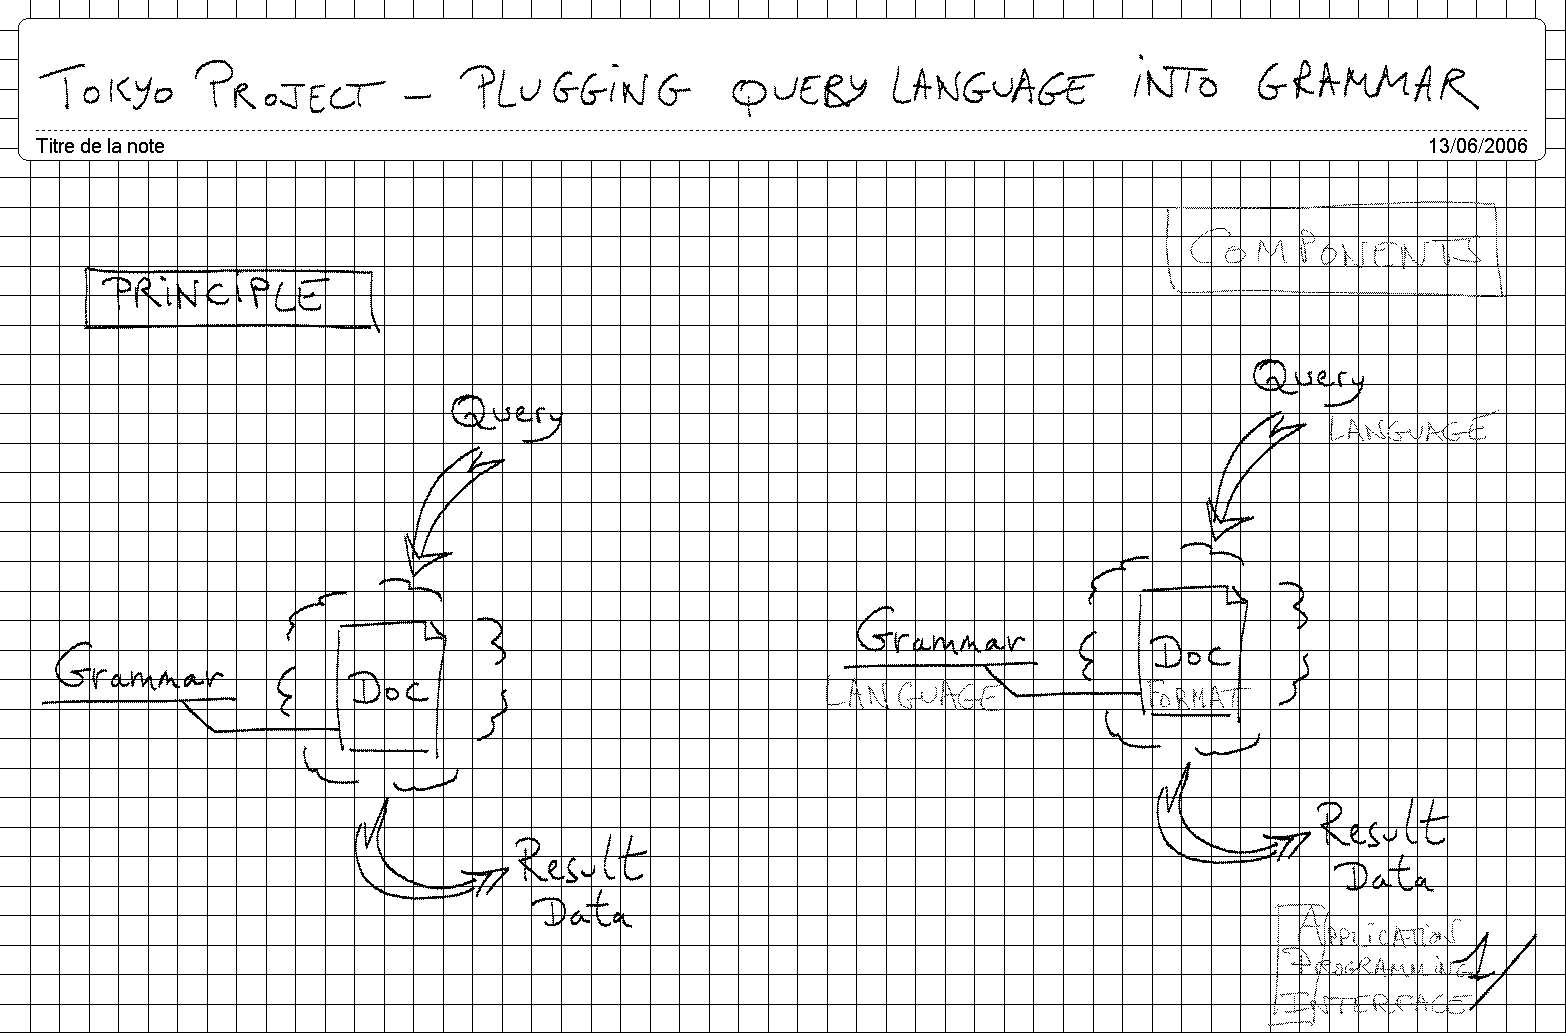 TOKYO PROJECT – PLUGGING QUERY LANGUAGE INTO GRAMMAR
Titre de la note
13/06/2006
PRINCIPLE
Query
Grammar
Doc
Result
Data
COMPONENTS
Query
LANGUAGE
Grammar
LANGUAGE
Doc
FORMAT
Result
Data
APPLICATION
PROGRAMMING
INTERFACE
1/